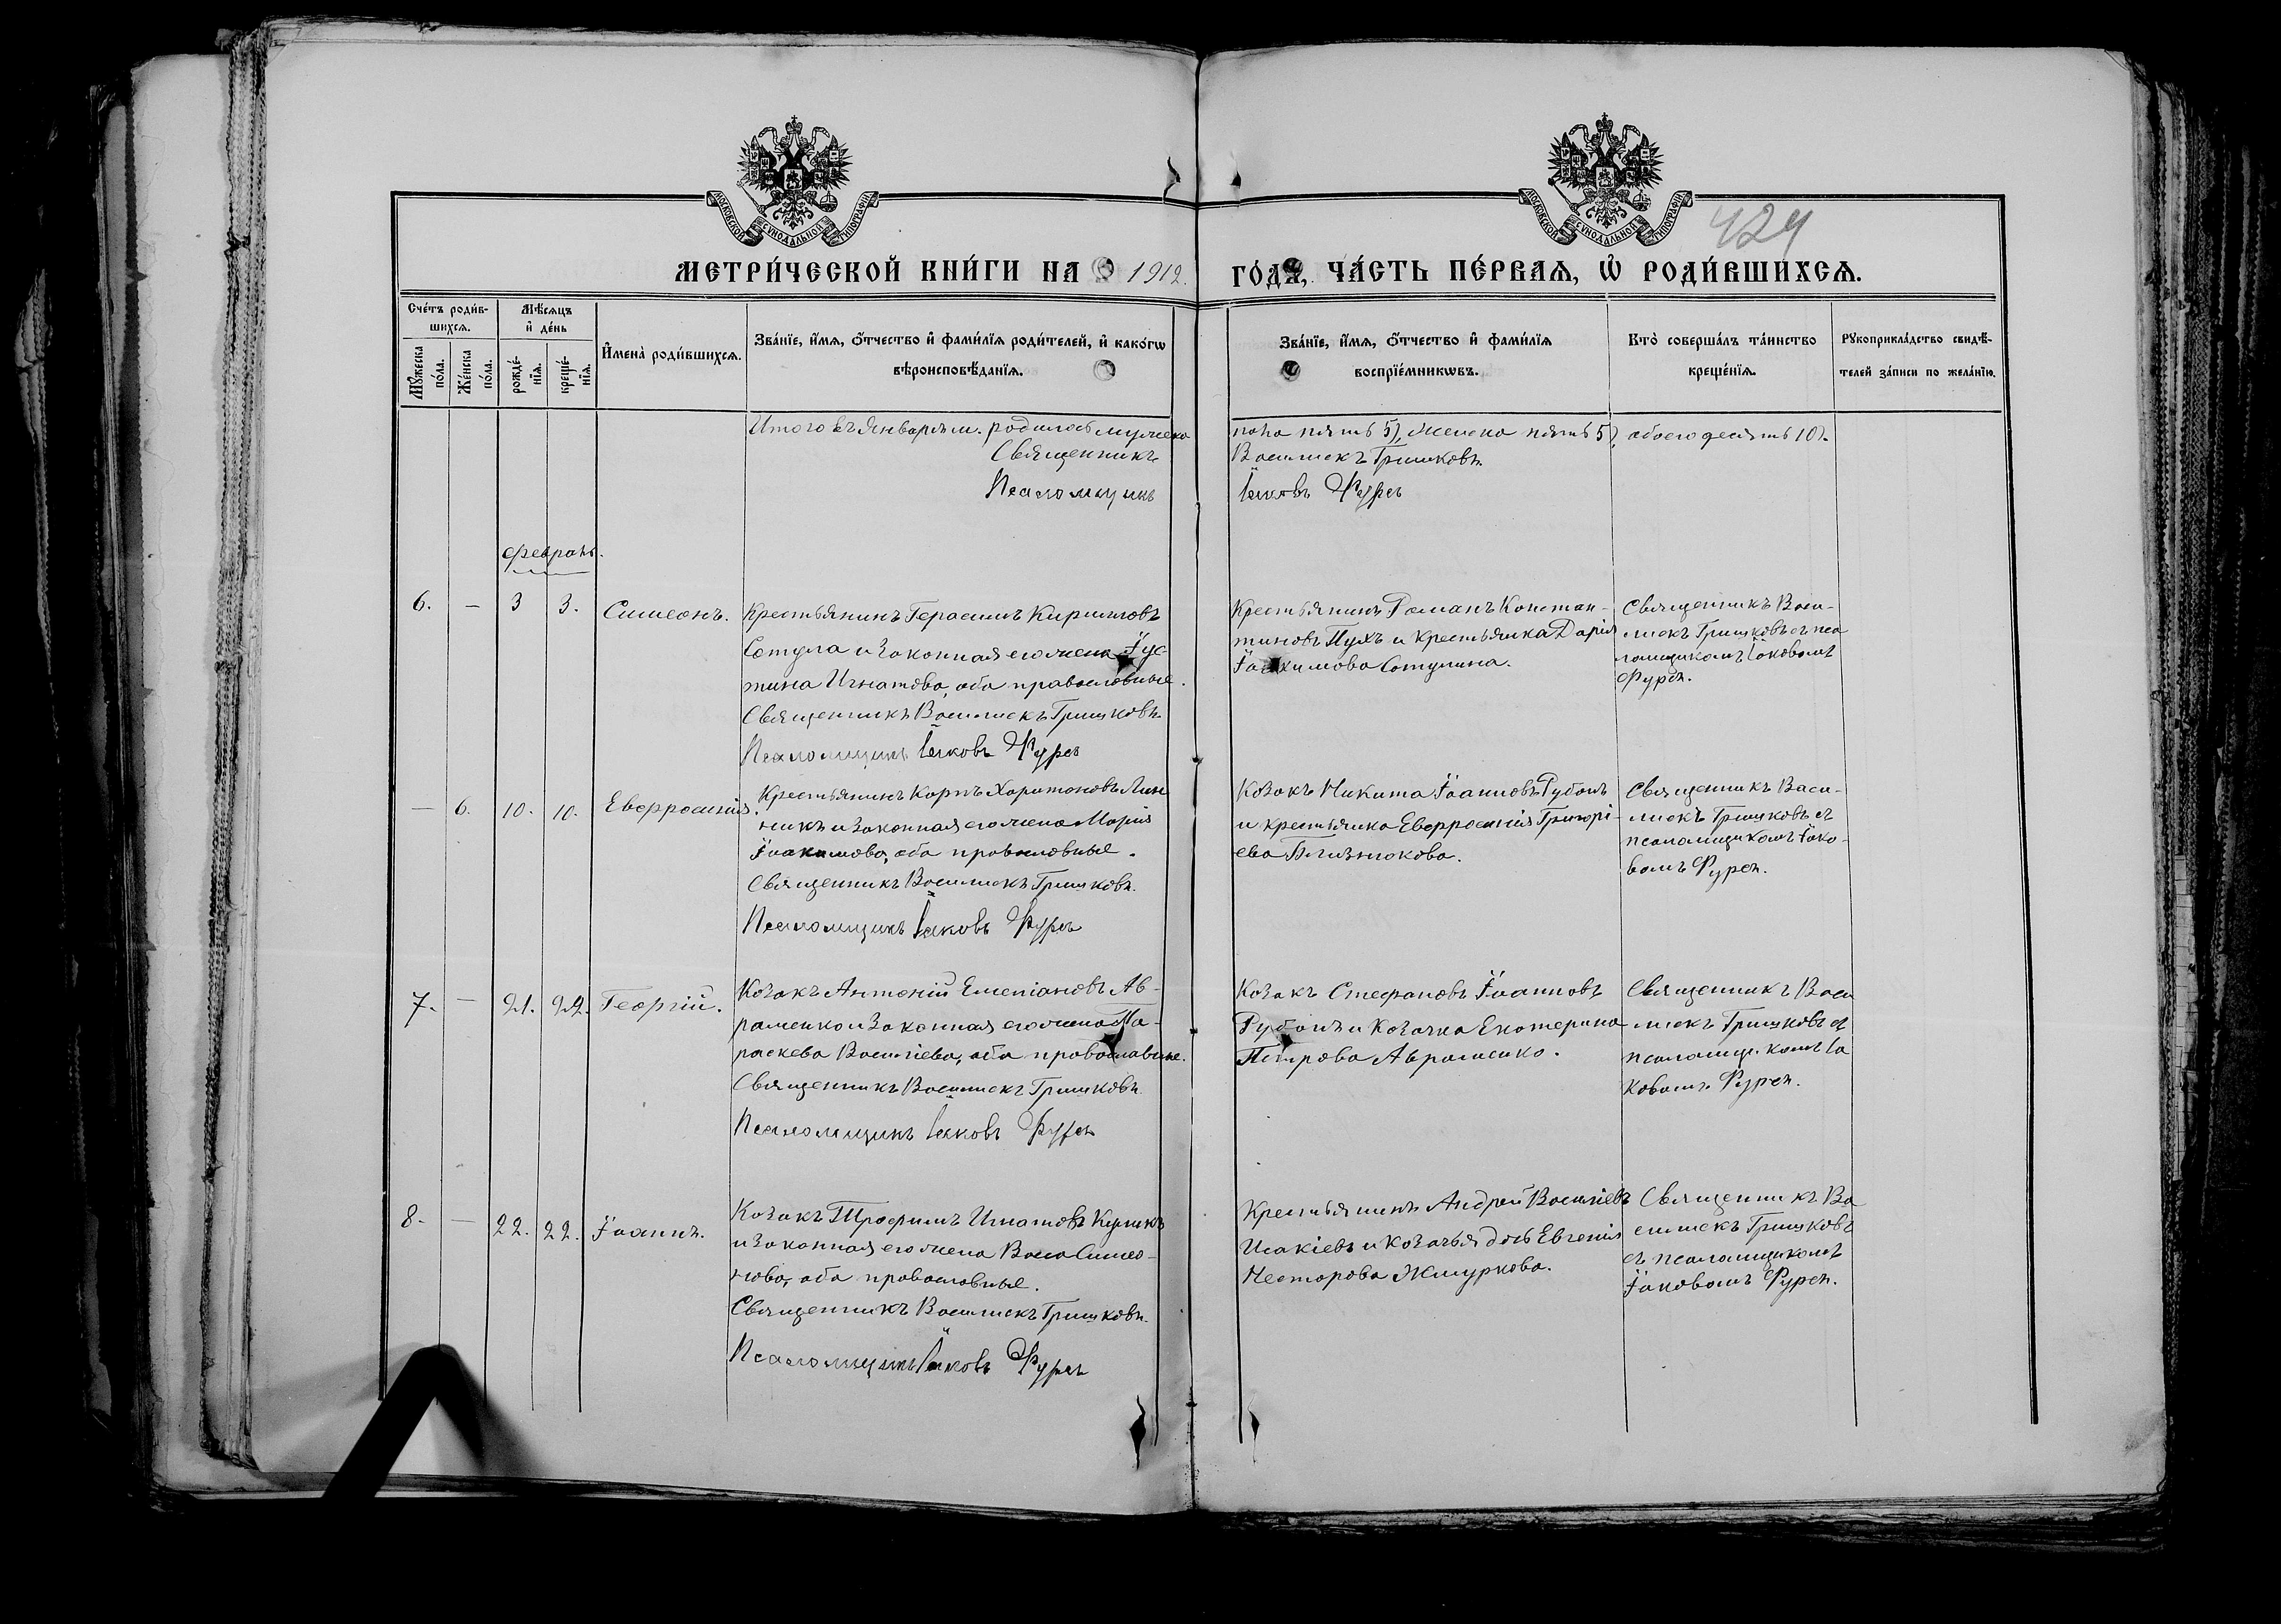 МОСКОВСКОЙ СУНОДАЛЬНОЙ ТИПОГРАФІИ
МОСКОВСКОЙ СУНОДАЛЬНОЙ ТИПОГРАФІИ
424
МЕТРИ́ЧЕСКОЙ КНИ́ГИ НА 1912.
ГО́ДЪ, ЧА́СТЬ ПЕ́РВАѦ, Ѡ҆ РОДИ́ВШИХСѦ.
Сче́тъ роди́в-
шихсѧ.
Мѣ́сѧцъ
и҆ де́нь
Мꙋ́жеска
по́ла.
Же́нска
по́ла.
рожде́-
нїѧ.
креще́-
нїѧ.
И҆мена̀ роди́вшихсѧ.
Зва́нїе, и҆́мѧ, ѻ҆́тчество и҆ фами́лїѧ роди́телей, и҆ како́гѡ
вѣроисповѣ́данїѧ.
Зва́нїе, и҆́мѧ, ѻ҆́тчество и҆ фами́лїѧ
воспрїе́мникѡвъ.
Кто̀ соверша́лъ та́инство
креще́нїѧ.
Рꙋкоприкла́дство свидѣ́-
телей за́писи по жела́нїю.
Итого въ Январѣ м. родилось мужеска
Священникъ
Псаломщикъ
пола пять 5), женска пять 5), обоего десять 10).
Василискъ Гришковъ.
Іаковъ Фурса
февраль.
6. — 3 3. Симеонъ.
Крестьянинъ Герасимъ Кирилловъ
Сотула и законная его жена Іус-
тина Игнатова, оба православные.
Священникъ Василискъ Гришковъ.
Псаломщикъ Іаковъ Фурса
Крестьянинъ Романъ Констан-
тиновъ Пухъ и крестьянка Дарія
Іоакимова Сотулина.
Священникъ Васи-
лискъ Гришковъ съ пса
ломщикомъ Іаковомъ
Фурса.
— 6. 10. 10. Евфросинія.
Крестьянинъ Карпъ Харитоновъ Лин
никъ и законная его жена Марія
Іоакимова, оба православные.
Священникъ Василискъ Гришковъ.
Псаломщикъ Іаковъ Фурса
Козакъ Никита Іоанновъ Рубанъ
и крестьянка Евфросинія Григорі-
ева Близнюкова.
Священникъ Васи-
лискъ Гришковъ съ
псаломщикомъ Іако-
вомъ Фурса.
7. — 21. 22. Георгій.
Козакъ Антоній Емеліановъ Ав-
раменко и законная его жена Па-
раскева Василіева, оба православные.
Священникъ Василискъ Гришковъ.
Псаломщикъ Іаковъ Фурса
Козакъ Стефановъ Іоанновъ
Рубанъ и Козачка Екатерина
Петрова Авраменко.
Священникъ Васи
лискъ Гришковъ съ
псаломщикомъ Іа
ковомъ Фурса.
8. — 22. 22. Іоаннъ.
Козакъ Трофимъ Игнатовъ Куликъ
и законная его жена Васса Симео-
нова, оба православные.
Священникъ Василискъ Гришковъ.
Псаломщикъ Іаковъ Фурса
Крестьянинъ Андрей Василіевъ
Исакіевъ и козачья дочь Евгенія
Несторова Жмуркова.
Священникъ Ва
силискъ Гришковъ
съ псаломщикомъ
Іаковомъ Фурса.